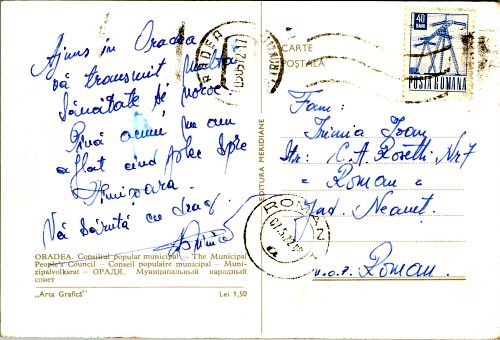 Ajuns in Oradea
vă transmit multa
Sănătate și noroc.
Pînă acum nu am
aflat cind plec spre
Timișoara.
Vă sărută cu drag
ORADEA. Consiliul popular municipal — The Municipal
People's Council — Conseil populaire municipal — Muni-
zipalvolksrat — ОРАДЯ. Муниципальный народный
совет
„Arta Grafică"
Lei 1,50
EDITURA MERIDIANE
ORADEA
CARTE
POȘTALĂ
40
BANI
POSTA ROMANA
Fam:
Irimia Ioan
Str: C.A. Rosetti Nr 7
= Roman =
Jud. Neamț.
ROMAN
Roman.